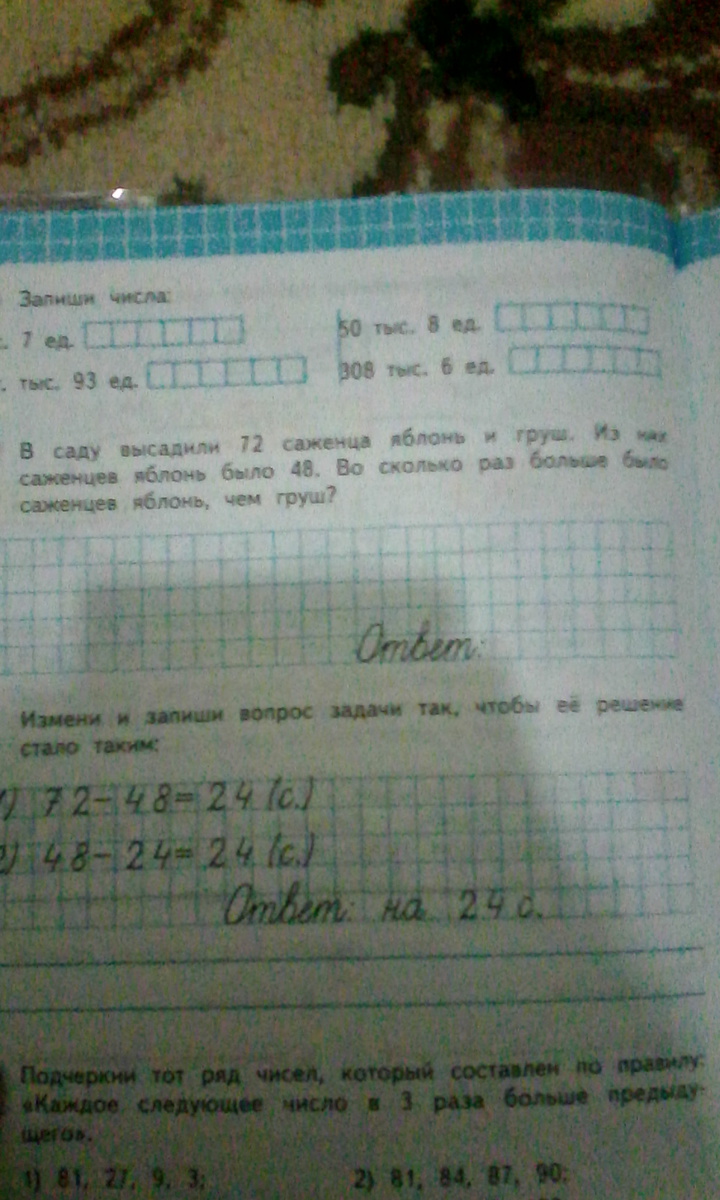 Запиши числа:
7 ед.
50 тыс. 8 ед.
тыс. 93 ед.
308 тыс. 6 ед.
В саду высадили 72 саженца яблонь и груш. Из них
саженцев яблонь было 48. Во сколько раз больше было
саженцев яблонь, чем груш?
Ответ:
Измени и запиши вопрос задачи так, чтобы её решение
стало таким:
1) 72-48=24 (с.)
2) 48-24=24 (с.)
Ответ: на 24 с.
Подчеркни тот ряд чисел, который составлен по правилу:
«Каждое следующее число в 3 раза больше предыду-
щего».
1) 81, 27, 9, 3;
2) 81, 84, 87, 90;